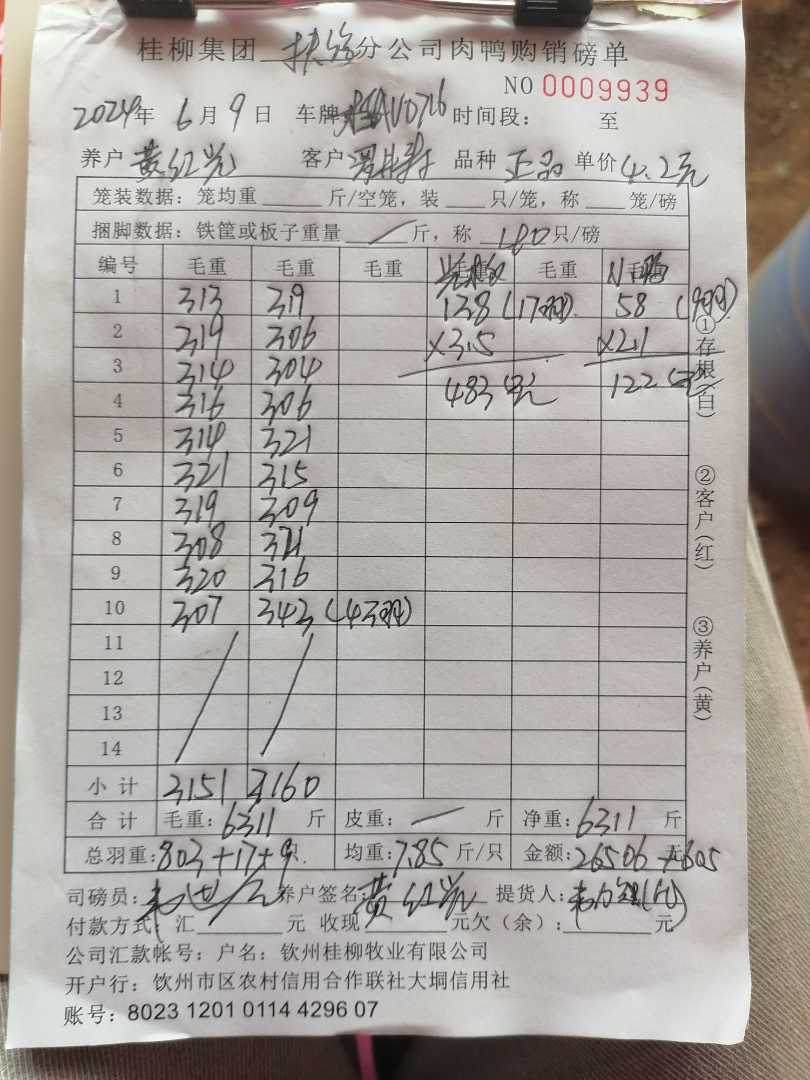 桂柳集团 扶绥 分公司肉鸭购销磅单
NO 0009939
2024年 6月9日 车牌 AV0716 时间段: 至
养户 黄红光 客户 品种 正品 单价 4.2元
笼装数据: 笼均重 斤/空笼, 装 只/笼, 称 笼/磅
捆脚数据: 铁筐或板子重量 / 斤, 称 40只/磅
编号 毛重 毛重 毛重 毛重
1 313 319 138 (17羽) 58 (9羽)
2 319 306 ×3.5 ×2.1
3 314 304
4 316 306 483元 122元
5 314 321
6 321 315
7 319 309
8 308 321
9 320 316
10 307 343 (43羽)
11
12
13
14
小计 3151 3160
合计 毛重: 6311 斤 皮重: — 斤 净重: 6311 斤
总羽重: 803+17+9 只 均重: 7.85 斤/只 金额: 26506+605 元
司磅员: 养户签名: 黄红光 提货人:
付款方式: 汇 元 收现 元欠(余): 元
公司汇款帐号: 户名: 钦州桂柳牧业有限公司
开户行: 钦州市区农村信用合作联社大垌信用社
账号: 8023 1201 0114 4296 07
①存根(白)
②客户(红)
③养户(黄)